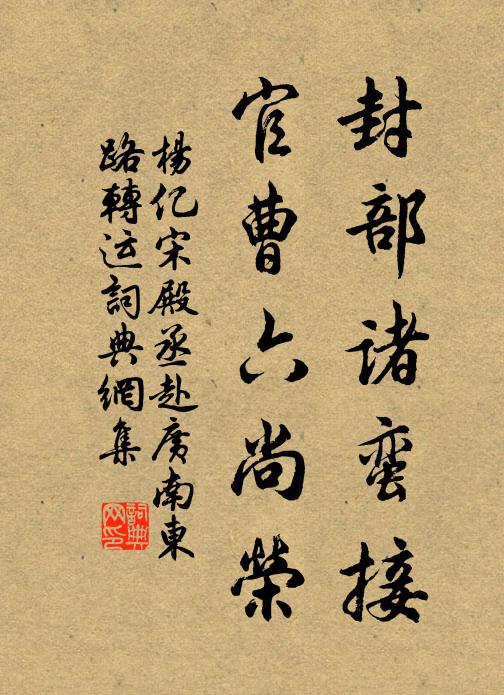 封部诸蛮接
官曹六尚榮
楊亿宋殿丞赴广南東
路轉运詞典網集
詞典网印